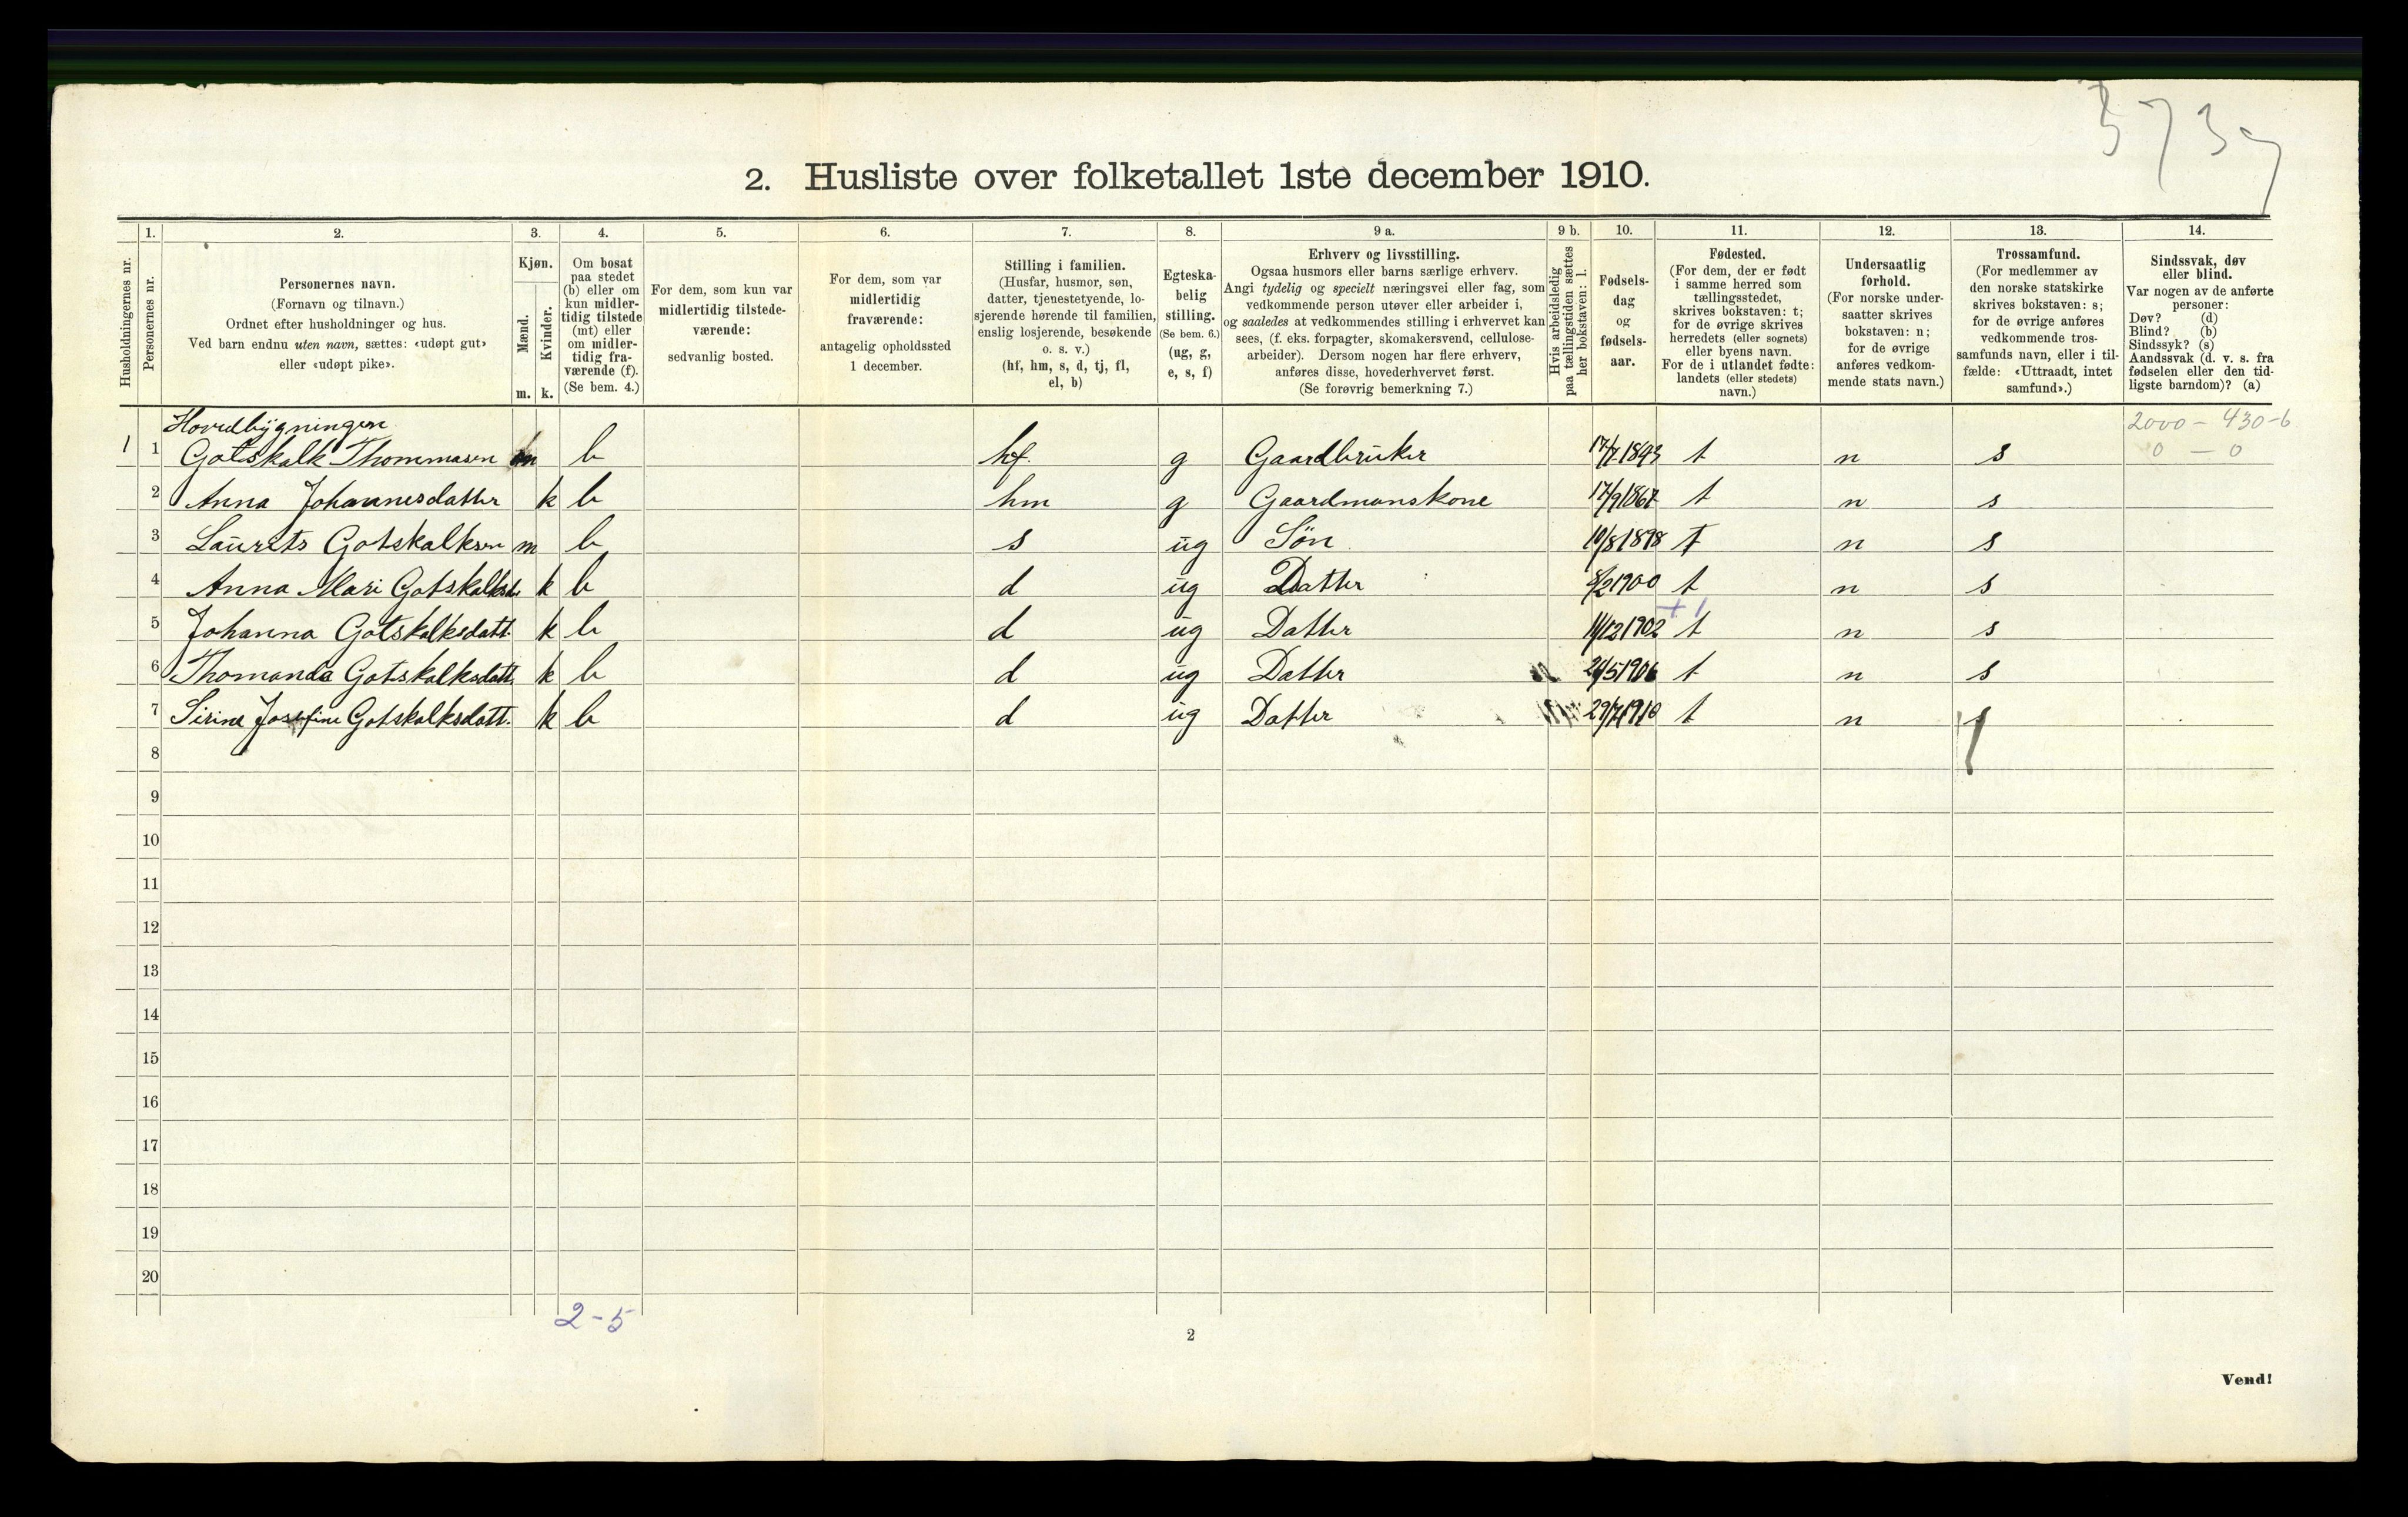 2. Husliste over folketallet 1ste december 1910.
Husholdningernes nr.
1.
Personernes nr.
2.
Personernes navn.
(Fornavn og tilnavn.)
Ordnet efter husholdninger og hus.
Ved barn endnu uten navn, sættes: «udøpt gut»
eller «udøpt pike».
3.
Kjøn.
Mænd.
Kvinder.
m. k.
4.
Om bosat
paa stedet
(b) eller om
kun midler-
tidig tilstede
(mt) eller
om midler-
tidig fra-
værende (f).
(Se bem. 4.)
5.
For dem, som kun var
midlertidig tilstede-
værende:
sedvanlig bosted.
6.
For dem, som var
midlertidig
fraværende:
antagelig opholdssted
1 december.
7.
Stilling i familien.
(Husfar, husmor, søn,
datter, tjenestetyende, lo-
sjerende hørende til familien,
enslig losjerende, besøkende
o. s. v.)
(hf, hm, s, d, tj, fl,
el, b)
8.
Egteska-
belig
stilling.
(Se bem. 6.)
(ug, g,
e, s, f)
9 a.
Erhverv og livsstilling.
Ogsaa husmors eller barns særlige erhverv.
Angi tydelig og specielt næringsvei eller fag, som
vedkommende person utøver eller arbeider i,
og saaledes at vedkommendes stilling i erhvervet kan
sees, (f. eks. forpagter, skomakersvend, cellulose-
arbeider). Dersom nogen har flere erhverv,
anføres disse, hovederhvervet først.
(Se forøvrig bemerkning 7.)
9 b.
Hvis arbeidsledig
paa tællingstiden sættes
her bokstaven: l.
10.
Fødsels-
dag
og
fødsels-
aar.
11.
Fødested.
(For dem, der er født
i samme herred som
tællingsstedet,
skrives bokstaven: t;
for de øvrige skrives
herredets (eller sognets)
eller byens navn.
For de i utlandet fødte:
landets (eller stedets)
navn.)
12.
Undersaatlig
forhold.
(For norske under-
saatter skrives
bokstaven: n;
for de øvrige
anføres vedkom-
mende stats navn.)
13.
Trossamfund.
(For medlemmer av
den norske statskirke
skrives bokstaven: s;
for de øvrige anføres
vedkommende tros-
samfunds navn, eller i til-
fælde: «Uttraadt, intet
samfund».)
14.
Sindssvak, døv
eller blind.
Var nogen av de anførte
personer:
Døv? (d)
Blind? (b)
Sindssyk? (s)
Aandssvak (d. v. s. fra
fødselen eller den tid-
ligste barndom)? (a)
2000 - 430-6
0 — 0
Hovedbygningen
1 1 Gotskalk Thommasen m b hf. g Gaardbruker t n s
2 Anna Johannesdatter k b hm g Gaardmanskone 17/9 1867 t n s
3 Laurits Gotskalksen m b s ug Søn 10/8 1898 t n s
4 Anna Mari Gotskalksd. k b d ug Datter 8/2 1900 t n s
5 Johanna Gotskalksdatt. k b d ug Datter 11/12 1902 t n s
6 Thomanda Gotskalksdatt. k b d ug Datter 24/5 1906 t n s
7 Sirine Josefine Gotskalksdatt. k b d ug Datter 29/7 1910 t n s
8
9
10
11
12
13
14
15
16
17
18
19
20
2-5
2
Vend!